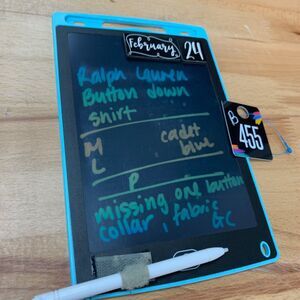 February 24
Ralph Lauren
Button down
shirt
B 455
M cadet
L blue
P
missing one button
collar, fabric
GC